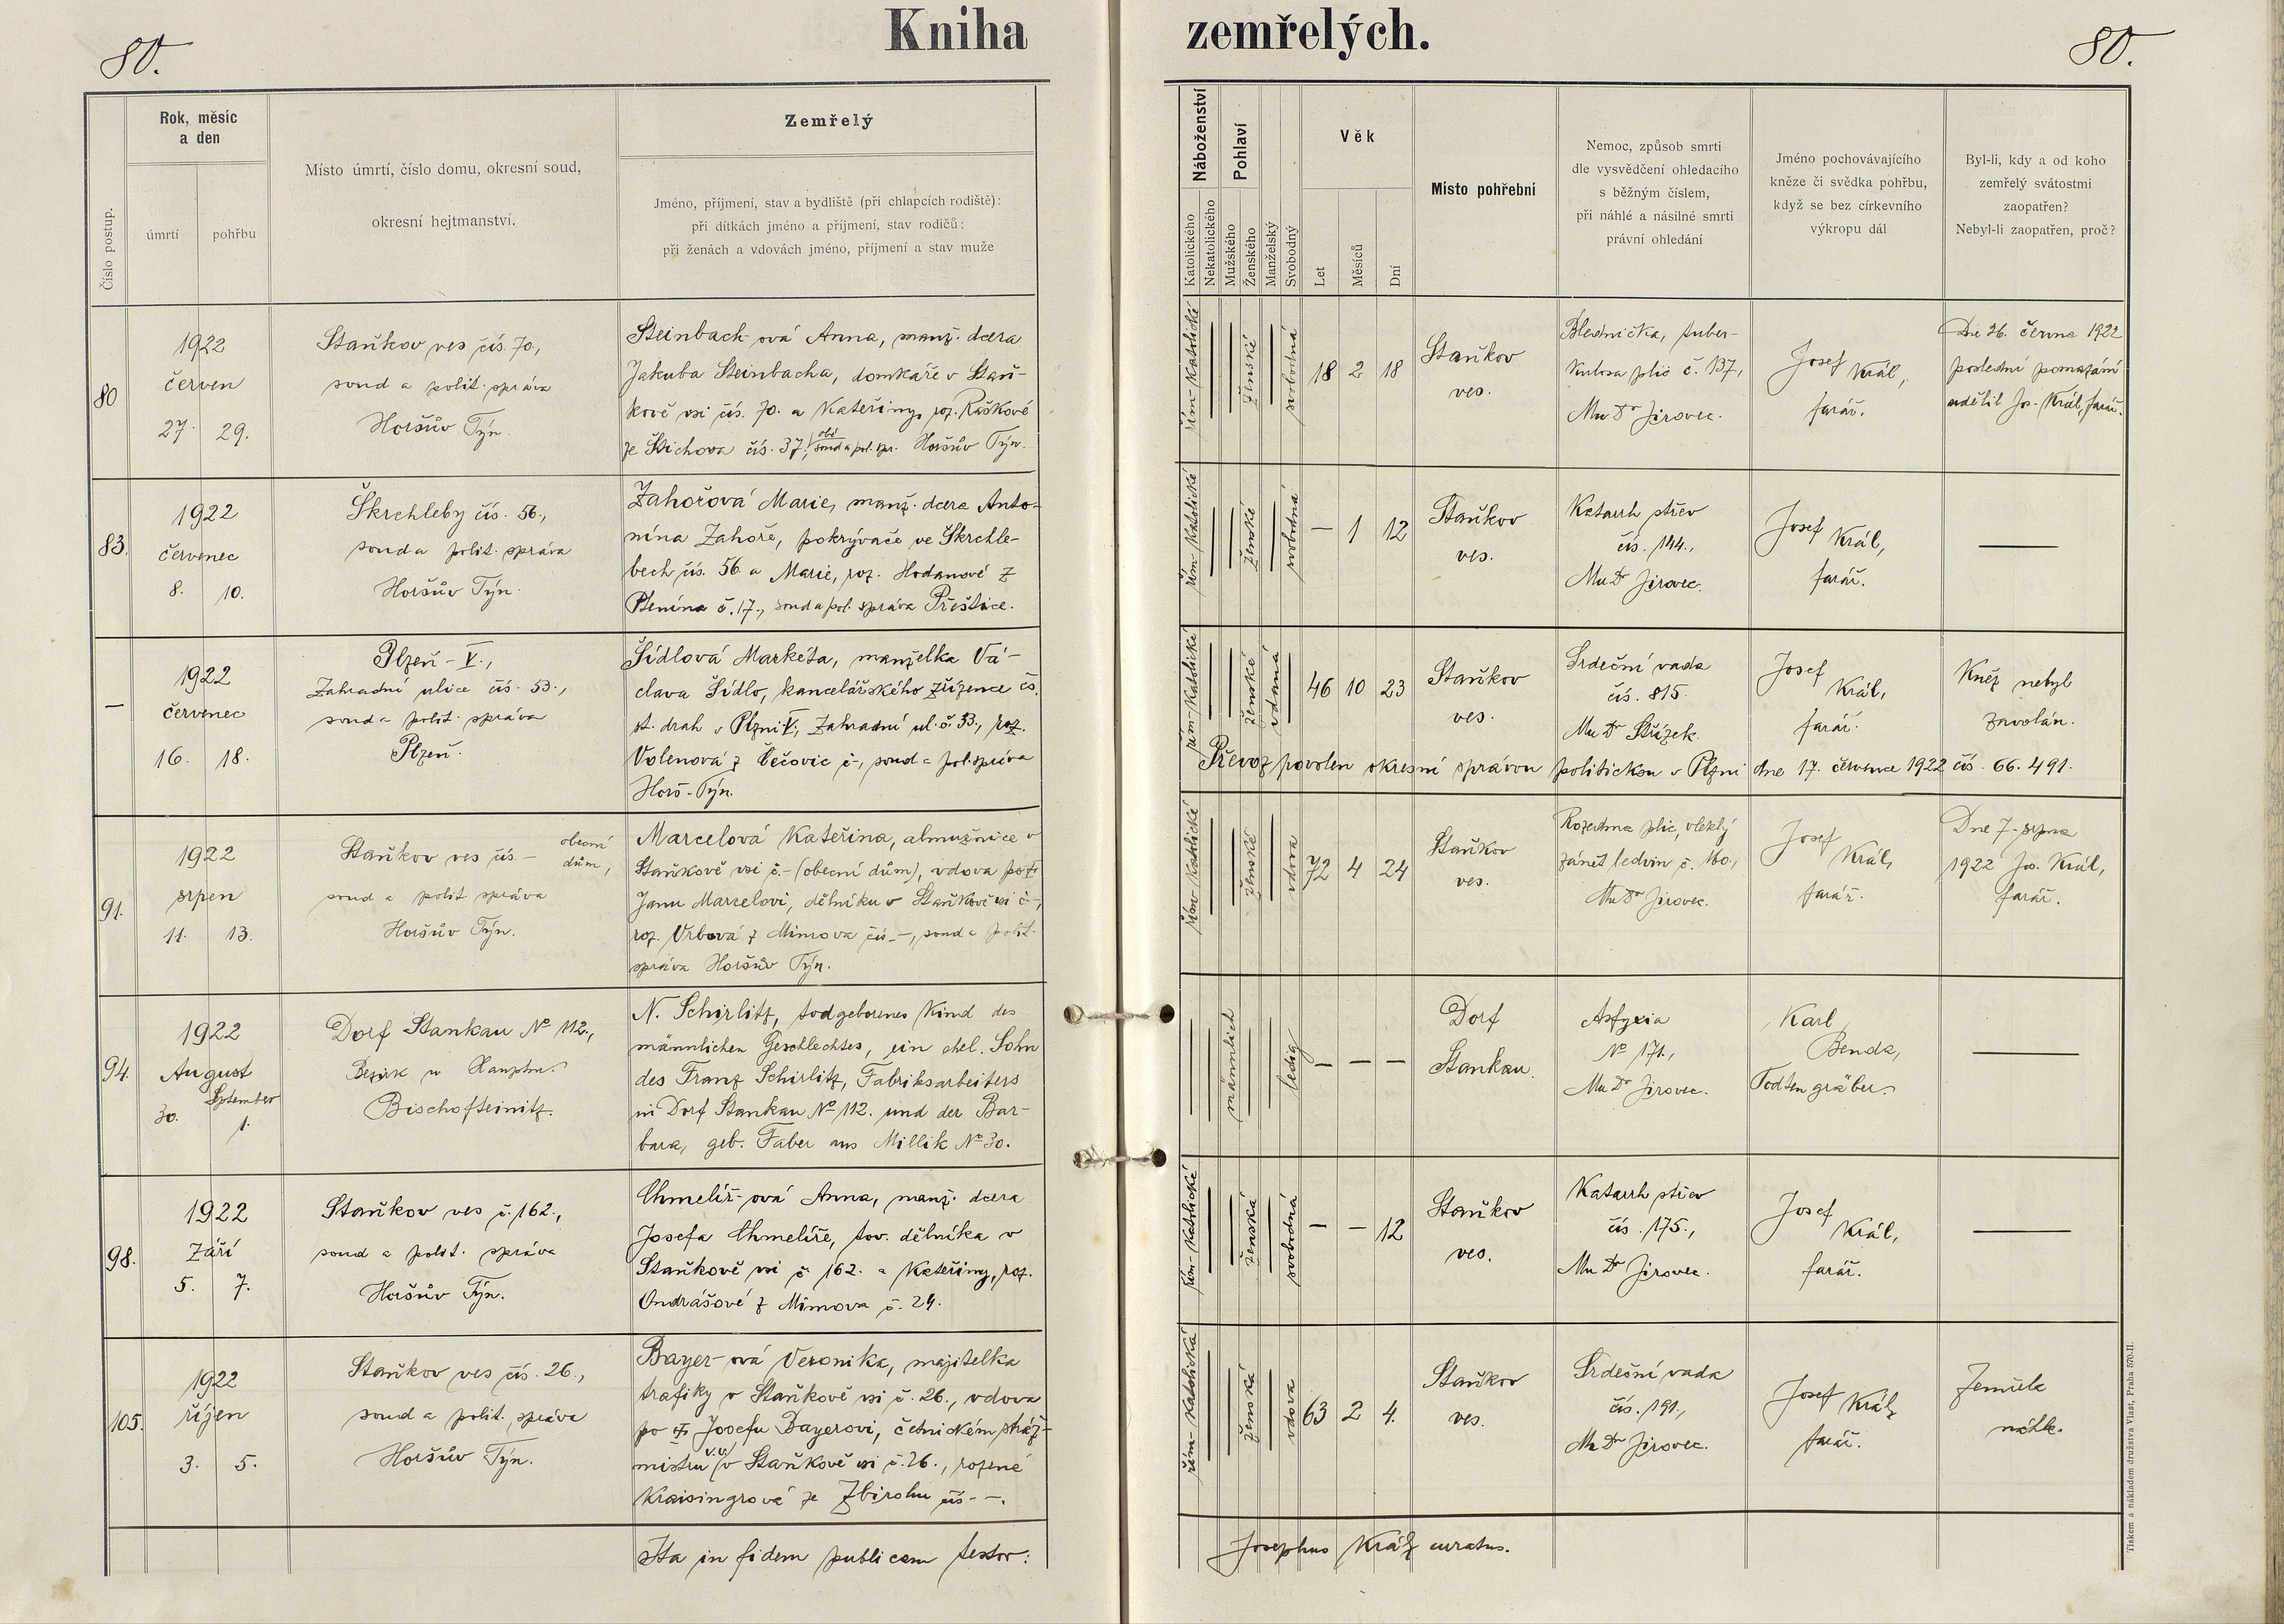 Kniha zemřelých.
80.
80.
Číslo postup.
Rok, měsíc
a den
úmrtí
pohřbu
Místo úmrtí, číslo domu, okresní soud,
okresní hejtmanství.
Zemřelý
Jméno, příjmení, stav a bydliště (při chlapcích rodiště):
při dítkách jméno a příjmení, stav rodičů:
při ženách a vdovách jméno, příjmení a stav muže
Náboženství
Katolického
Nekatolického
Pohlaví
Mužského
Ženského
Manželský
Svobodný
Věk
Let
Měsíců
Dní
Místo pohřební
Nemoc, způsob smrti
dle vysvědčení ohledacího
s běžným číslem,
při náhlé a násilné smrti
právní ohledání
Jméno pochovávajícího
kněze či svědka pohřbu,
když se bez církevního
výkropu dál
Byl-li, kdy a od koho
zemřelý svátostmi
zaopatřen?
Nebyl-li zaopatřen, proč?
80
1922
červen
27. 29.
Staňkov ves čís. 70.,
soud a polit. správa
Horšův Týn.
Steinbach-ová Anna, manž. dcera
Jakuba Steinbacha, domkáře v Staň-
kově vsi čís. 70. a Kateřiny, roz. Raškové
ze Štichova čís. 37., obě soud a pol. spr. Horšův Týn.
řím-katolické
ženské
svobodná
18 2 18
Staňkov
ves.
Blednička, tuber-
kulosa plic č. 137.,
MuDr Jirovec.
Josef Král,
farář.
Dne 26. června 1922
poslední pomazání
udělil Jos. Král, farář.
83.
1922
červenec
8. 10.
Škrchleby čís. 56.,
soud a polit. správa
Horšův Týn.
Zahořová Marie, manž. dcera Anto-
nína Zahoře, pokrývače ve Škrchle-
bech čís. 56. a Marie, roz. Hodanové z
Ptenína č. 17., soud a pol. správa Přeštice.
řím-katolické
ženské
svobodná
— 1 12
Staňkov
ves.
Katarrh střev
čís. 144.,
MuDr Jirovec.
Josef Král,
farář.
—
—
1922
červenec
16. 18.
Plzeň - V.,
Zahradní ulice čís. 53.,
soud a polit. správa
Plzeň.
Šídlová Markéta, manželka Vá-
clava Šídlo, kancelářského zřízence čs.
st. drah v Plzni V., Zahradní ul. č. 53., roz.
Volenová z Čečovic č-, soud a pol. správa
Horš.-Týn.
řím-katolické
ženské
vdaná
46 10 23
Staňkov
ves.
Srdeční vada
čís. 815.
MuDr Střízek.
Josef
Král,
farář.
Kněz nebyl
zavolán.
Převoz povolen okresní správou politickou v Plzni dne 17. července 1922 čís. 66.491.
91.
1922
srpen
11. 13.
Staňkov ves čís. — obecní dům,
soud a polit správa
Horšův Týn.
Marcelová Kateřina, almužnice v
Staňkově vsi č.- (obecní dům), vdova po †
Janu Marcelovi, dělníku v Staňkově vsi č-,
roz. Vrbová z Mimova čís. —, soud a polit.
správa Horšův Týn.
řím-katolické
ženské
vdova
72 4 24
Staňkov
ves.
Rozedma plic, vleklý
zánět ledvin č. 160.,
MuDr Jirovec.
Josef
Král,
farář.
Dne 7. srpna
1922 Jos. Král,
farář.
94.
1922
August
September
30. 1.
Dorf Stankau No 112.,
Bezirk u Hauptm.
Bischofteinitz.
N. Schirlitz, todgeborenes Kind des
männlichen Geschlechtes, ein ehel. Sohn
des Franz Schirlitz, Fabriksarbeiters
in Dorf Stankau No 112. und der Bar-
bara, geb. Faber aus Millik No 30.
männlich
ledig
— — —
Dorf
Stankau.
Asfyxia
No 171.,
MuDr Jirovec.
Karl
Benda,
Todtengräber.
—
98.
1922
Září
5. 7.
Staňkov ves č. 162.,
soud a polit. správa
Horšův Týn.
Chmelíř-ová Anna, manž. dcera
Josefa Chmelíře, tov. dělníka v
Staňkově vsi č. 162. a Kateřiny, roz.
Ondrášové z Mimova č. 24.
řím-katolické
ženská
svobodná
— — 12
Staňkov
ves.
Katarrh střev
čís. 175.,
MuDr Jirovec.
Josef
Král,
farář.
—
105.
1922
říjen
3. 5.
Staňkov ves čís. 26.,
soud a polit. správa
Horšův Týn.
Bayer-ová Veronika, majitelka
trafiky v Staňkově vsi č. 26., vdova
po † Josefu Bayerovi, četnickém stráž-
mistru v.v. v Staňkově vsi č. 26., rozené
Kraisingrová ze Zbirohu čís. —.
řím-katolická
ženská
vdova
63 2 4.
Staňkov
ves.
Srdeční vada
čís. 191.,
MuDr Jirovec.
Josef Král,
farář.
Zemřela
náhle.
Ita in fidem publicam testor:
Josephus Král, curatus.
Tiskem a nákladem družstva Vlast, Praha 570-II.